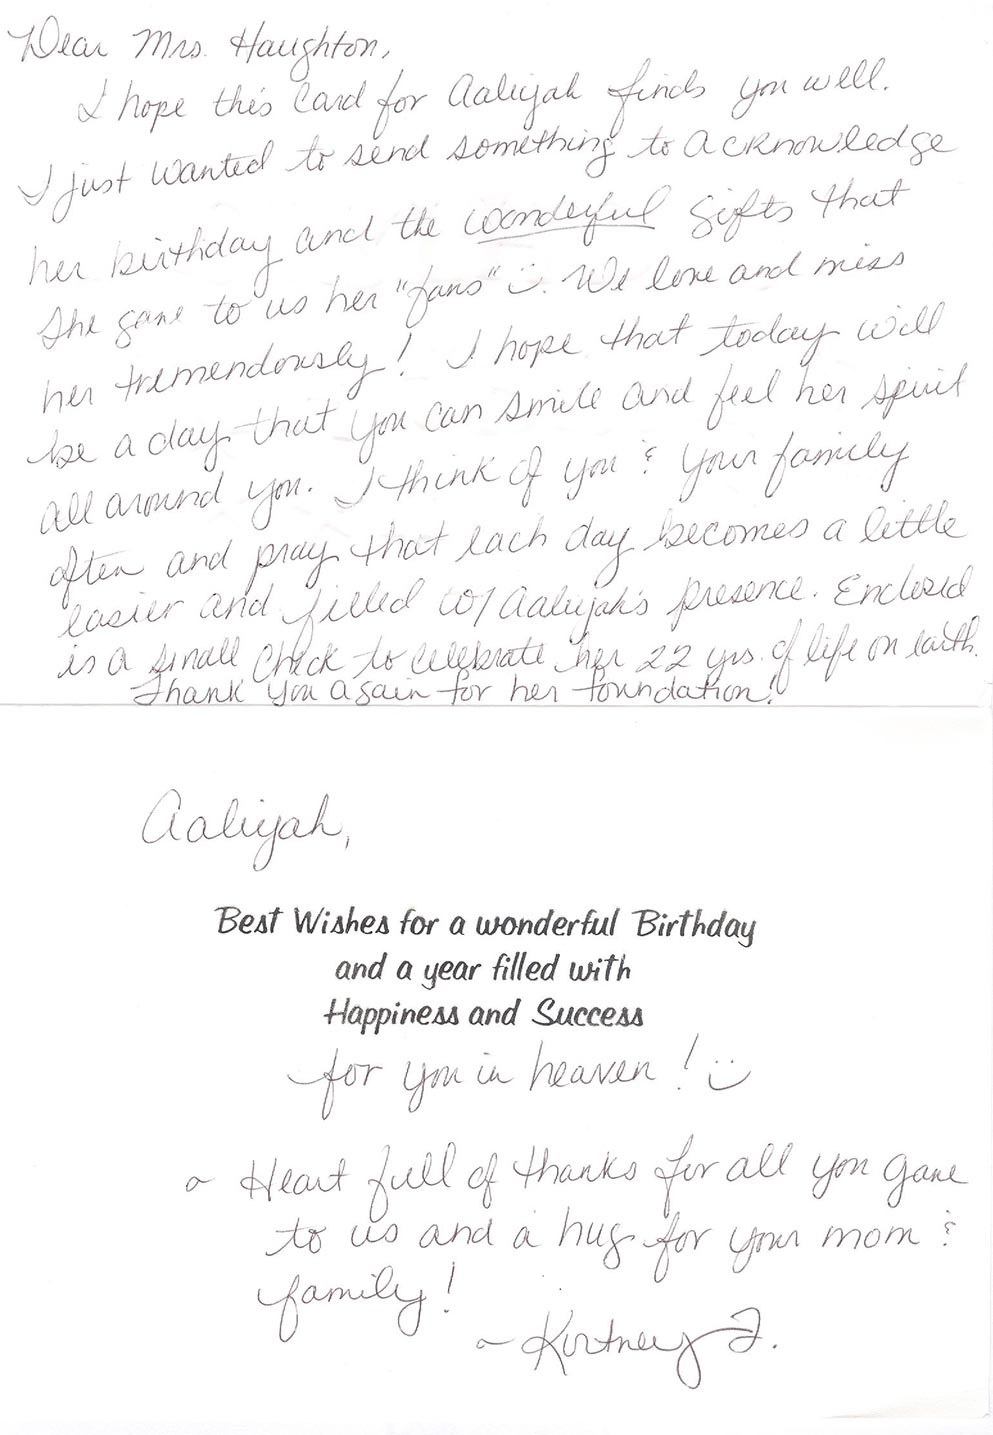 Dear Mrs. Haughton,
I hope this card for Aaliyah finds you well.
I just wanted to send something to acknowledge
her birthday and the wonderful gifts that
she gave to us her "fans" :). We love and miss
her tremendously! I hope that today will
be a day that you can smile and feel her spirit
all around you. I think of you & your family
often and pray that each day becomes a little
easier and filled w/ Aaliyah's presence. Enclosed
is a small check to celebrate her 22 yrs. of life on earth.
Thank you again for her foundation!
Aaliyah,
Best Wishes for a wonderful Birthday
and a year filled with
Happiness and Success
for you in heaven! :)
~ Heart full of thanks for all you gave
to us and a hug for your mom &
family!
~ Kortney J.